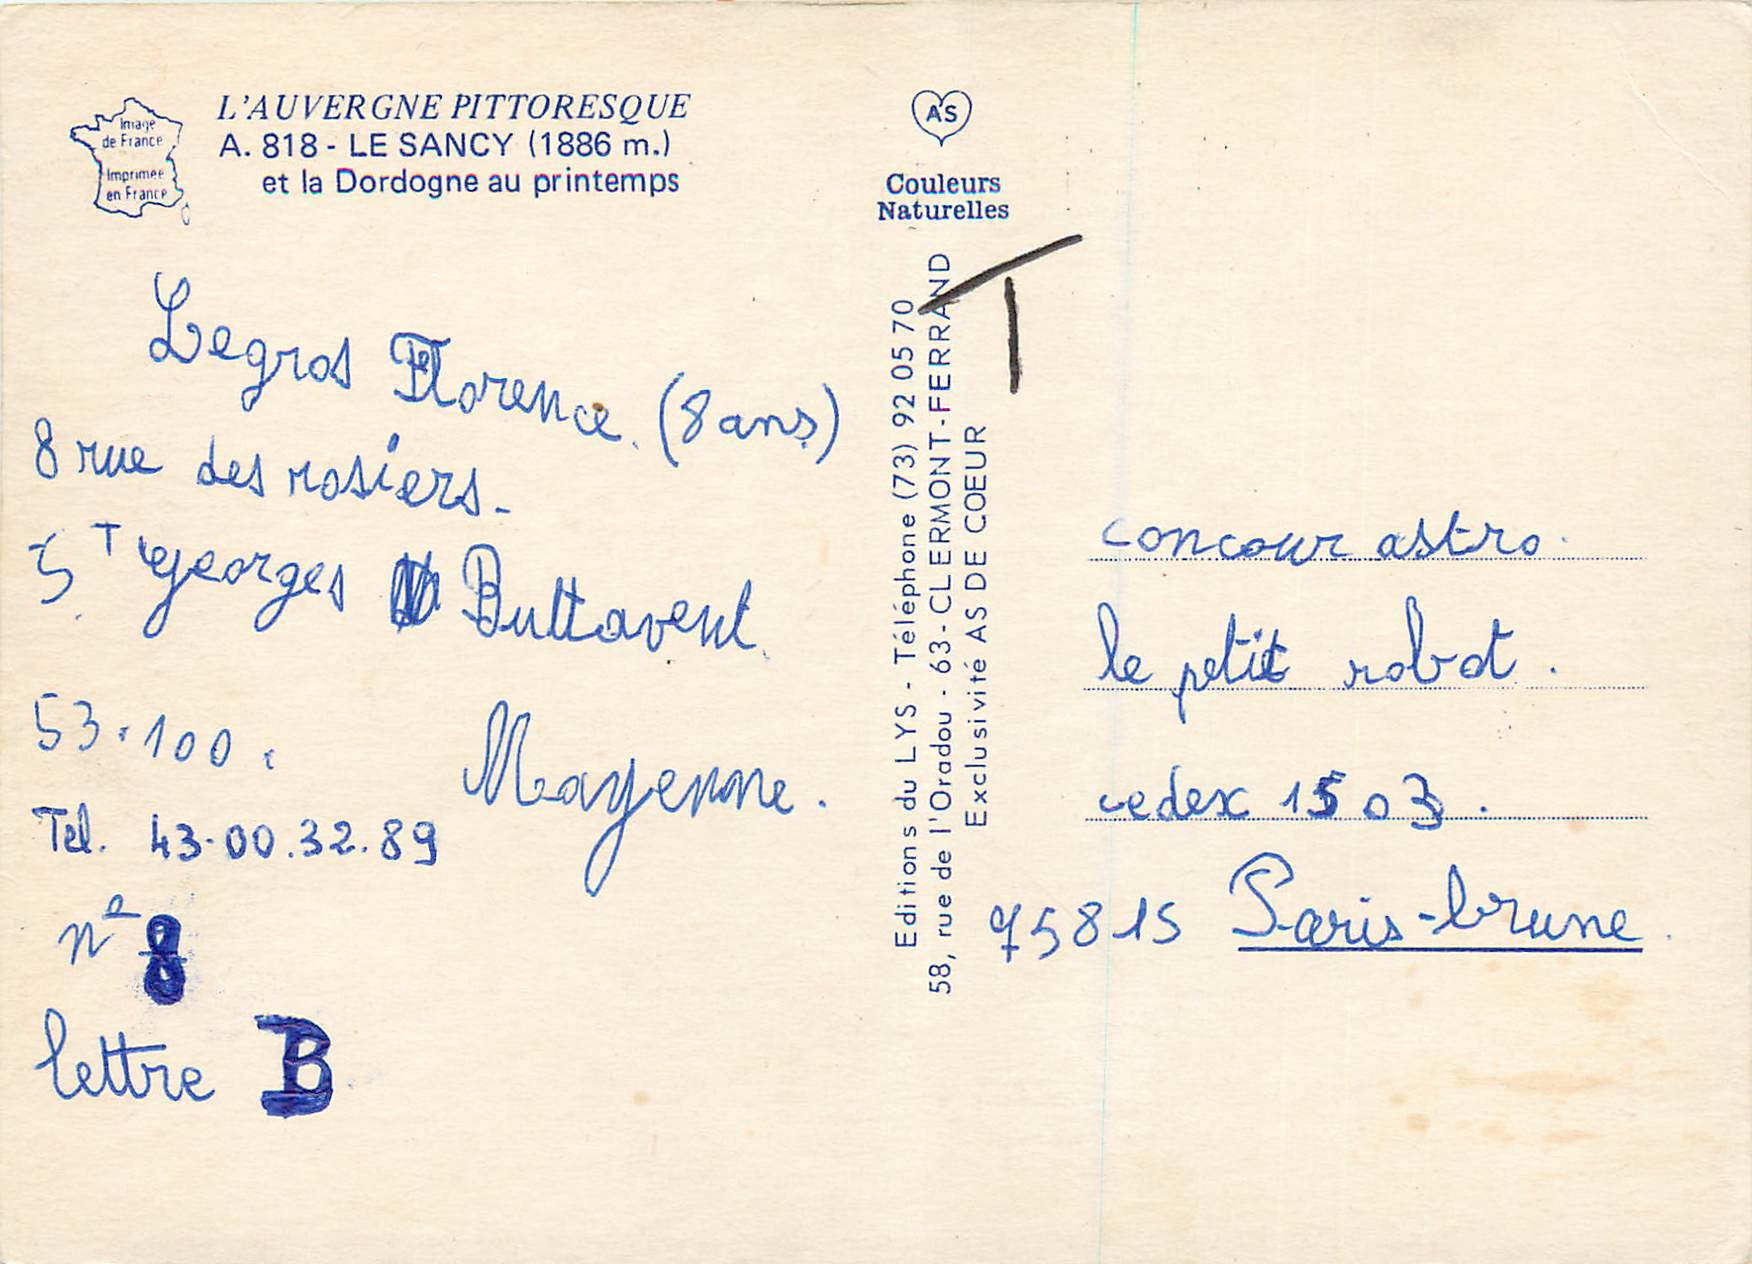 Image
de France
Imprimée
en France
L'AUVERGNE PITTORESQUE
A. 818 - LE SANCY (1886 m.)
et la Dordogne au printemps
AS
Couleurs
Naturelles
Legros Florence. (8 ans)
8 rue des rosiers.
ST georges Buttavent.
53.100. Mayenne.
Tel. 43.00.32.89
n° 8
lettre B
Editions du LYS - Téléphone (73) 92 05 70
58, rue de l'Oradou - 63 - CLERMONT-FERRAND
Exclusivité AS DE COEUR
T
concour astro.
le petit robot.
cedex 1503.
75815 Paris-brune.